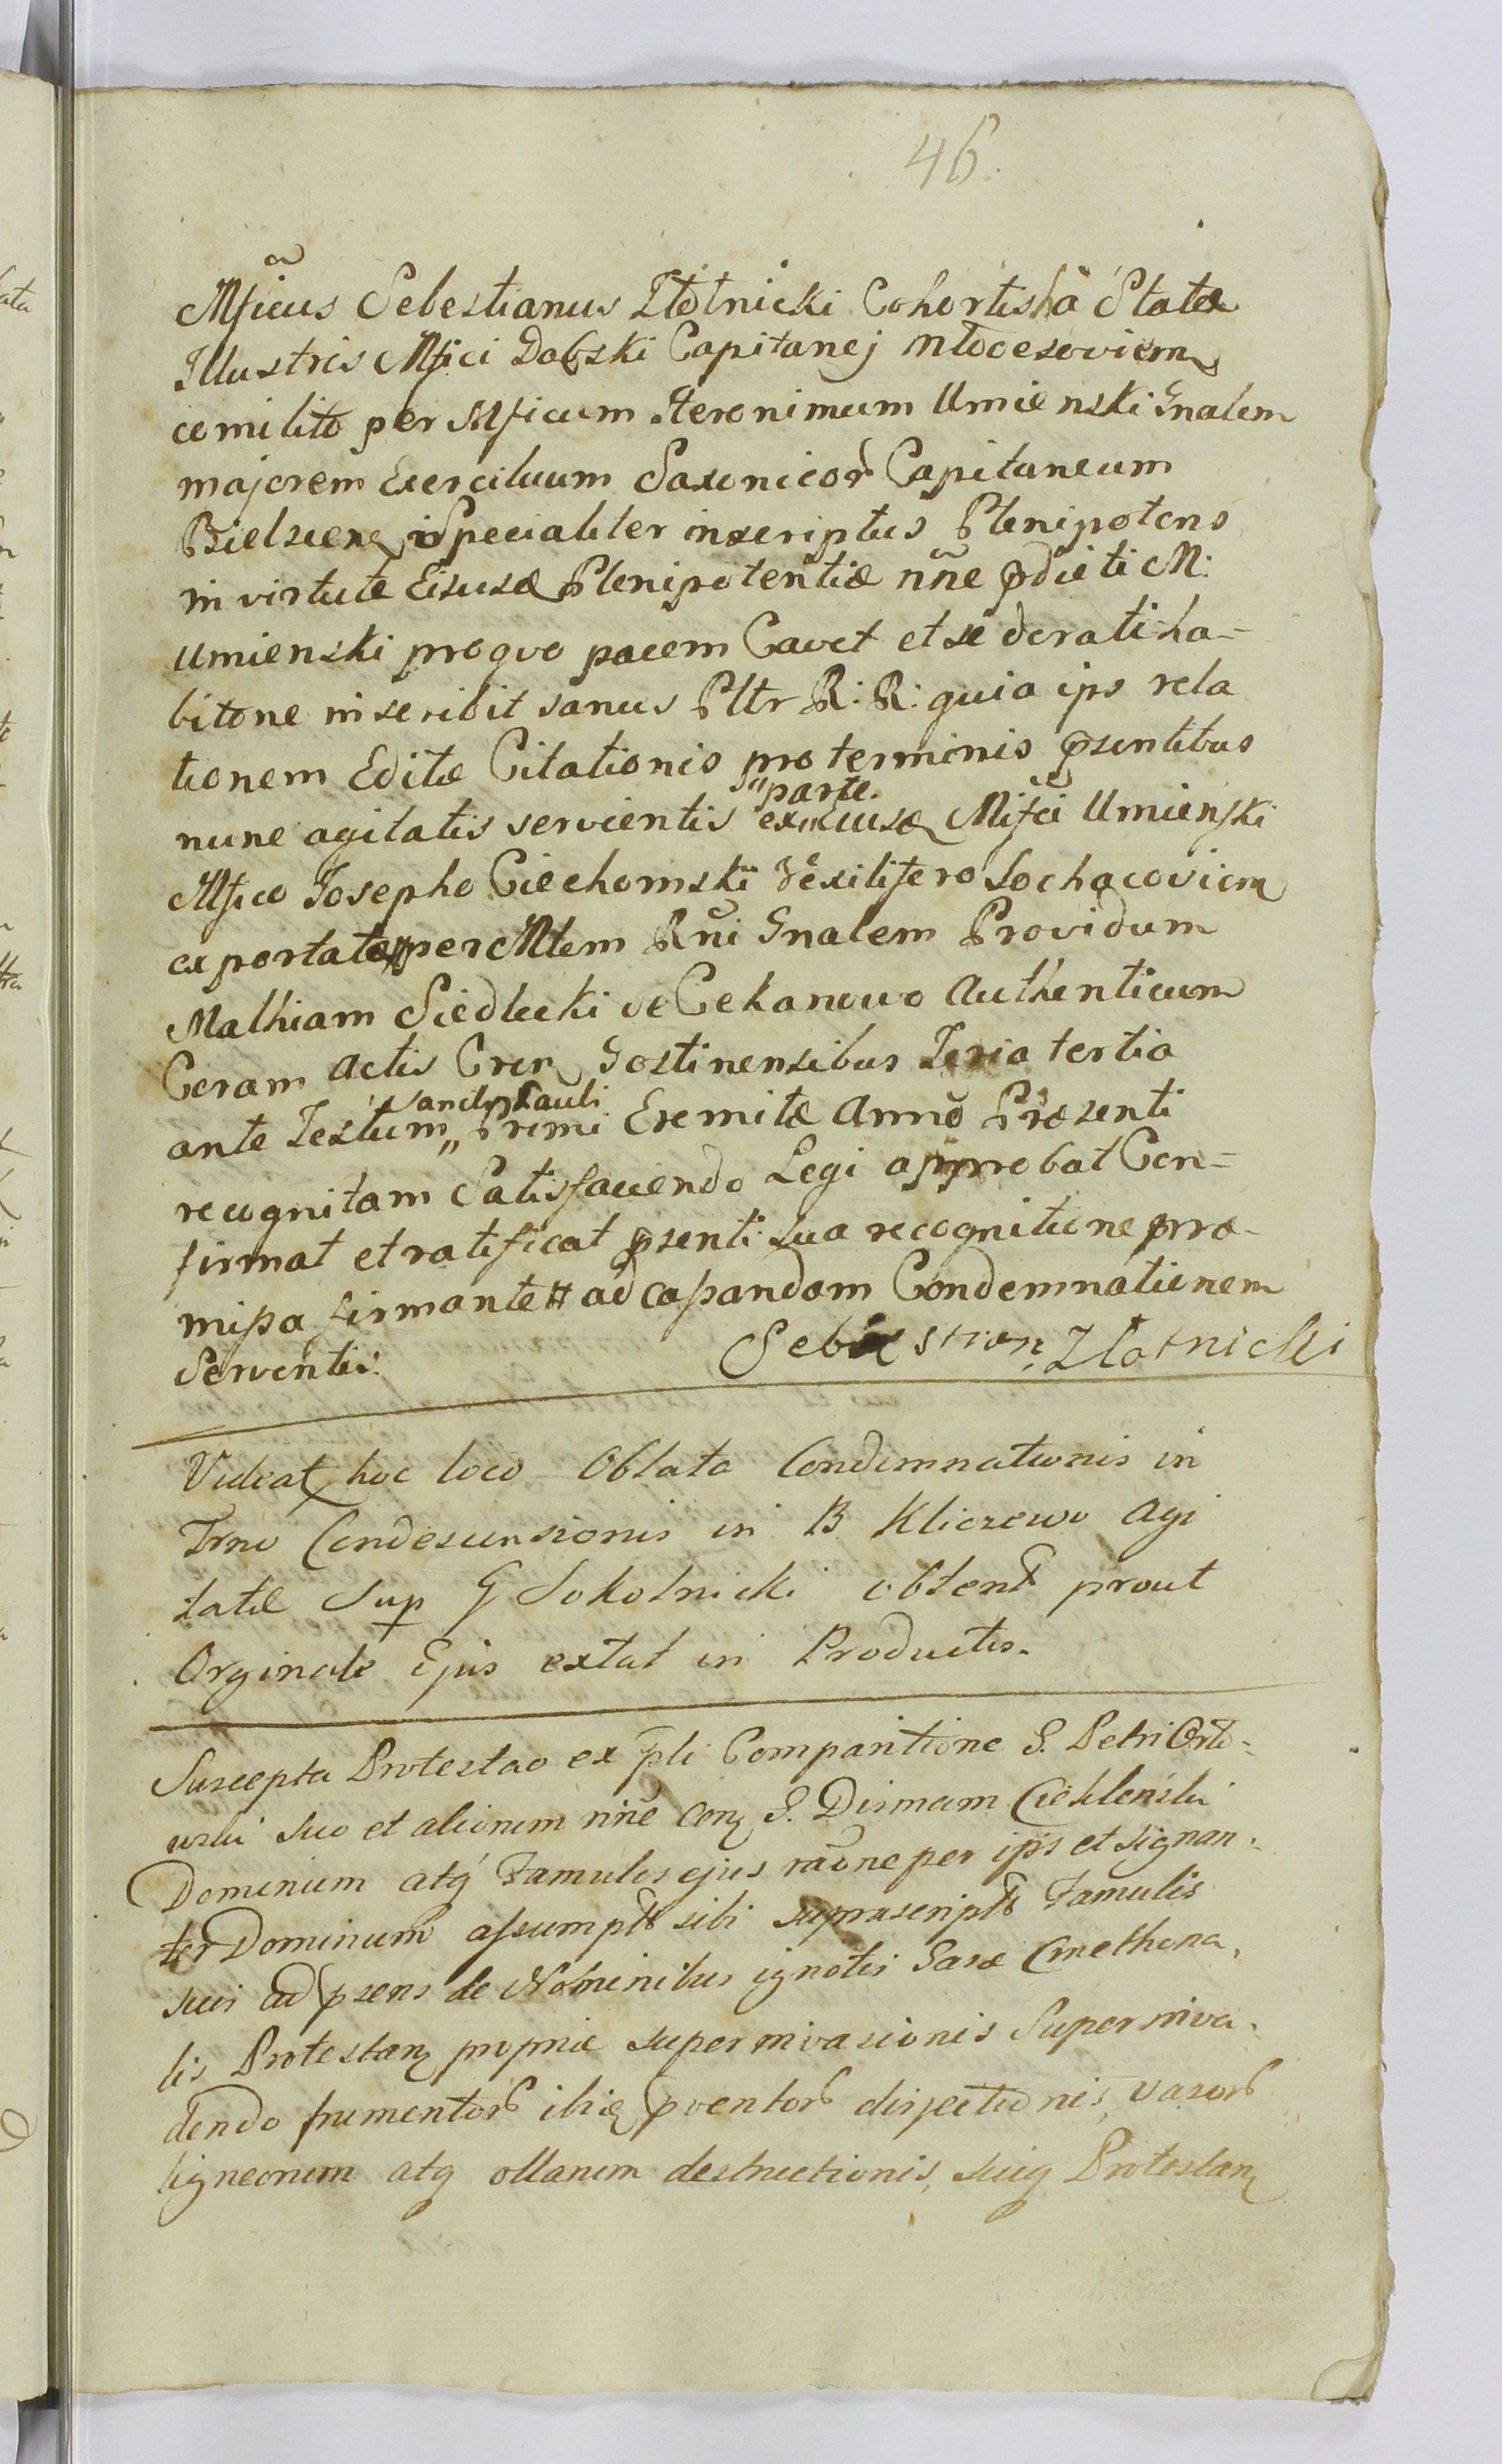 46.
Mficus Sebestianus Złotnicki Cohortis ha State
Illustris Mfici Dabski Capitanej Młocesoviem
comilito per Mficum Heronimum Umienski Gnalem
majorem Exercituum Saxonicor Capitaneum
Bielscen Specialiter inscriptus Plenipotens
in virtute Eiusd Plenipotentiæ nñe pdicti M:
Umienski pro quo pacem Cavet et se de rati ha-
bitone inscribit sanus Pltr R: R: quia ips rela
tionem Editæ Citationis pro terminis psentibus
nunc agitatis servientis ex parte Eiusd Mifci Umienski
Mfico Josepho Ciechomski Vexilifero Sochacoviem
exportatæ per Mtem Rñi Gnalem Providum
Mathiam Siedlecki de Cekanowo Authenticum
Coram Actis Cren Gostinensibus Feria tertia
ante Festum Sancti Pauli Primi Eremitæ Anno Præsenti
recognitam Satisfaciendo Legi approbat Con-
firmat et ratificat psenti sua recognitione præ-
missa firmante ad cassandam Condemnationem
Serventis.
Sebestian Złotnicki
Videat hoc loco Oblata Condemnationis in
Trno Condescensionis in B Kliczewo Agi
tatæ Sup G Sokolnicki obtent prout
Orginale Ejus extat in Productis.
Suscepta Protestao ex pli Comparitione G. Petri Orto-
wski suo et aliorum nñe Con G. Dismam Cieklenski
Dominum atq Famulos ejus raõne per ips et signan-
ter Dominum assumpts sibi suprascripts Famulis
suis ad psens de Nominibus ignotis Casæ Cmethona-
lis Protestan propriæ super invasionis Super inva-
dendo frumentor ibid pventor disjectionis, vasor
ligneorum atq ollarum destructionis, suiq Protestan